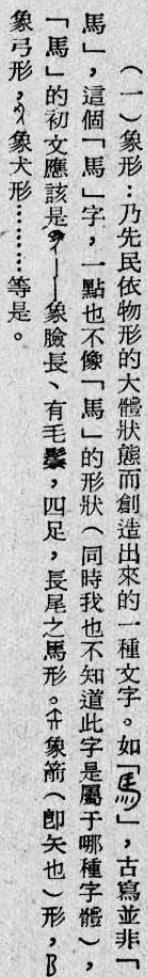 （一）象形：乃先民依物形的大體狀態而創造出來的一種文字。如「馬」，古寫並非「
馬」，這個「馬」字，一點也不像「馬」的形狀（同時我也不知道此字是屬于哪種字體），
「馬」的初文應該是——象臉長、有毛鬃，四足，長尾之馬形。象箭（卽矢也）形，
象弓形，象犬形………等是。